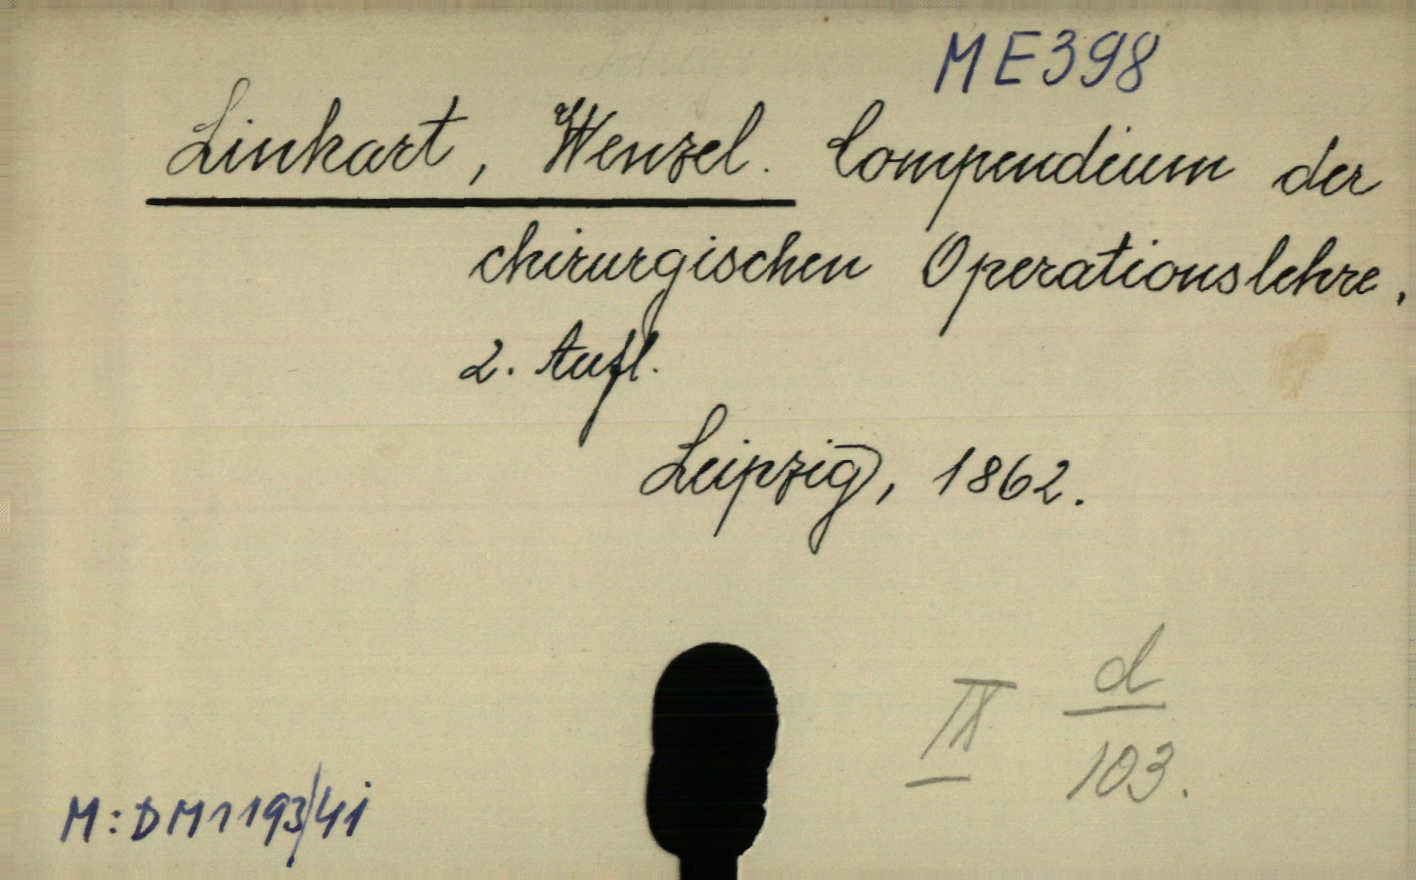 ME398
Linkart, Wenzel. Compendium der
chirurgischen Operationslehre.
2. Aufl.
Leipzig, 1862.
IX d
103.
M: DM1193/41